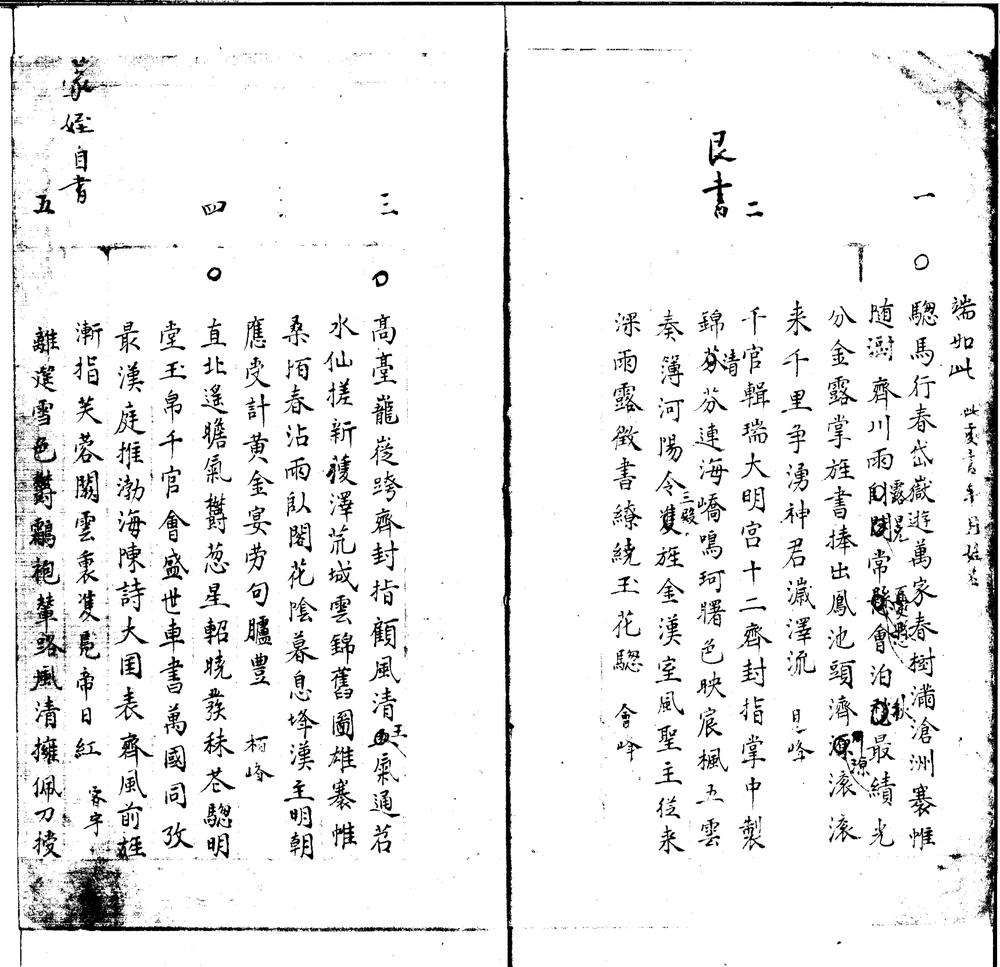 端如此
一
騘馬行春岱嶽遊萬家春樹滿滄洲褰帷
随澍齊川雨露晃常憂懸會泊秋最績光
分金露掌旌書捧出鳳池頭濟源滾滾
来千里争湧神君濊澤流 日峰
艮書
二
千官輯瑞大明宫十二齊封指掌中製
錦清芬連海嶠鳴珂曙色映宸楓五雲
奏簿河陽令三殿旌金漢室風聖主從来
深雨露徵書繚繞玉花騘 會峰
三
髙臺巃嵸跨齊封指顧風清王氣通若
水仙搓新薤澤荒城雲錦舊圖雄褰帷
桑陌春沾雨臥閣花陰暮息烽漢主明朝
應受計黄金宴勞句臚豐 栢峰
四
直北遥瞻氣欎葱星軺曉發秣花騘明
堂玉帛千官會盛世車書萬國同攷
最漢庭推渤海陳詩大国表齊風前旌
漸指芙蓉闕雲裏雙鳧帝日紅 客宇
蒙姪自書
五
離筵雪色欝鸘袍輦路風清擁佩刀授